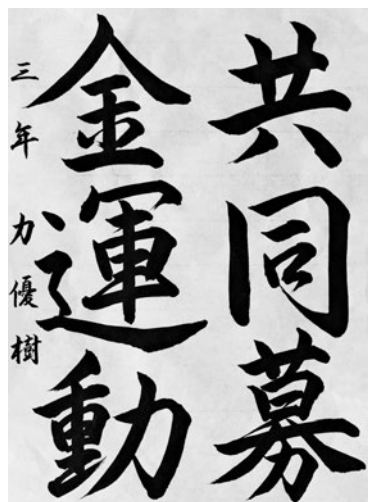 共同募
金運動
三年 力優樹